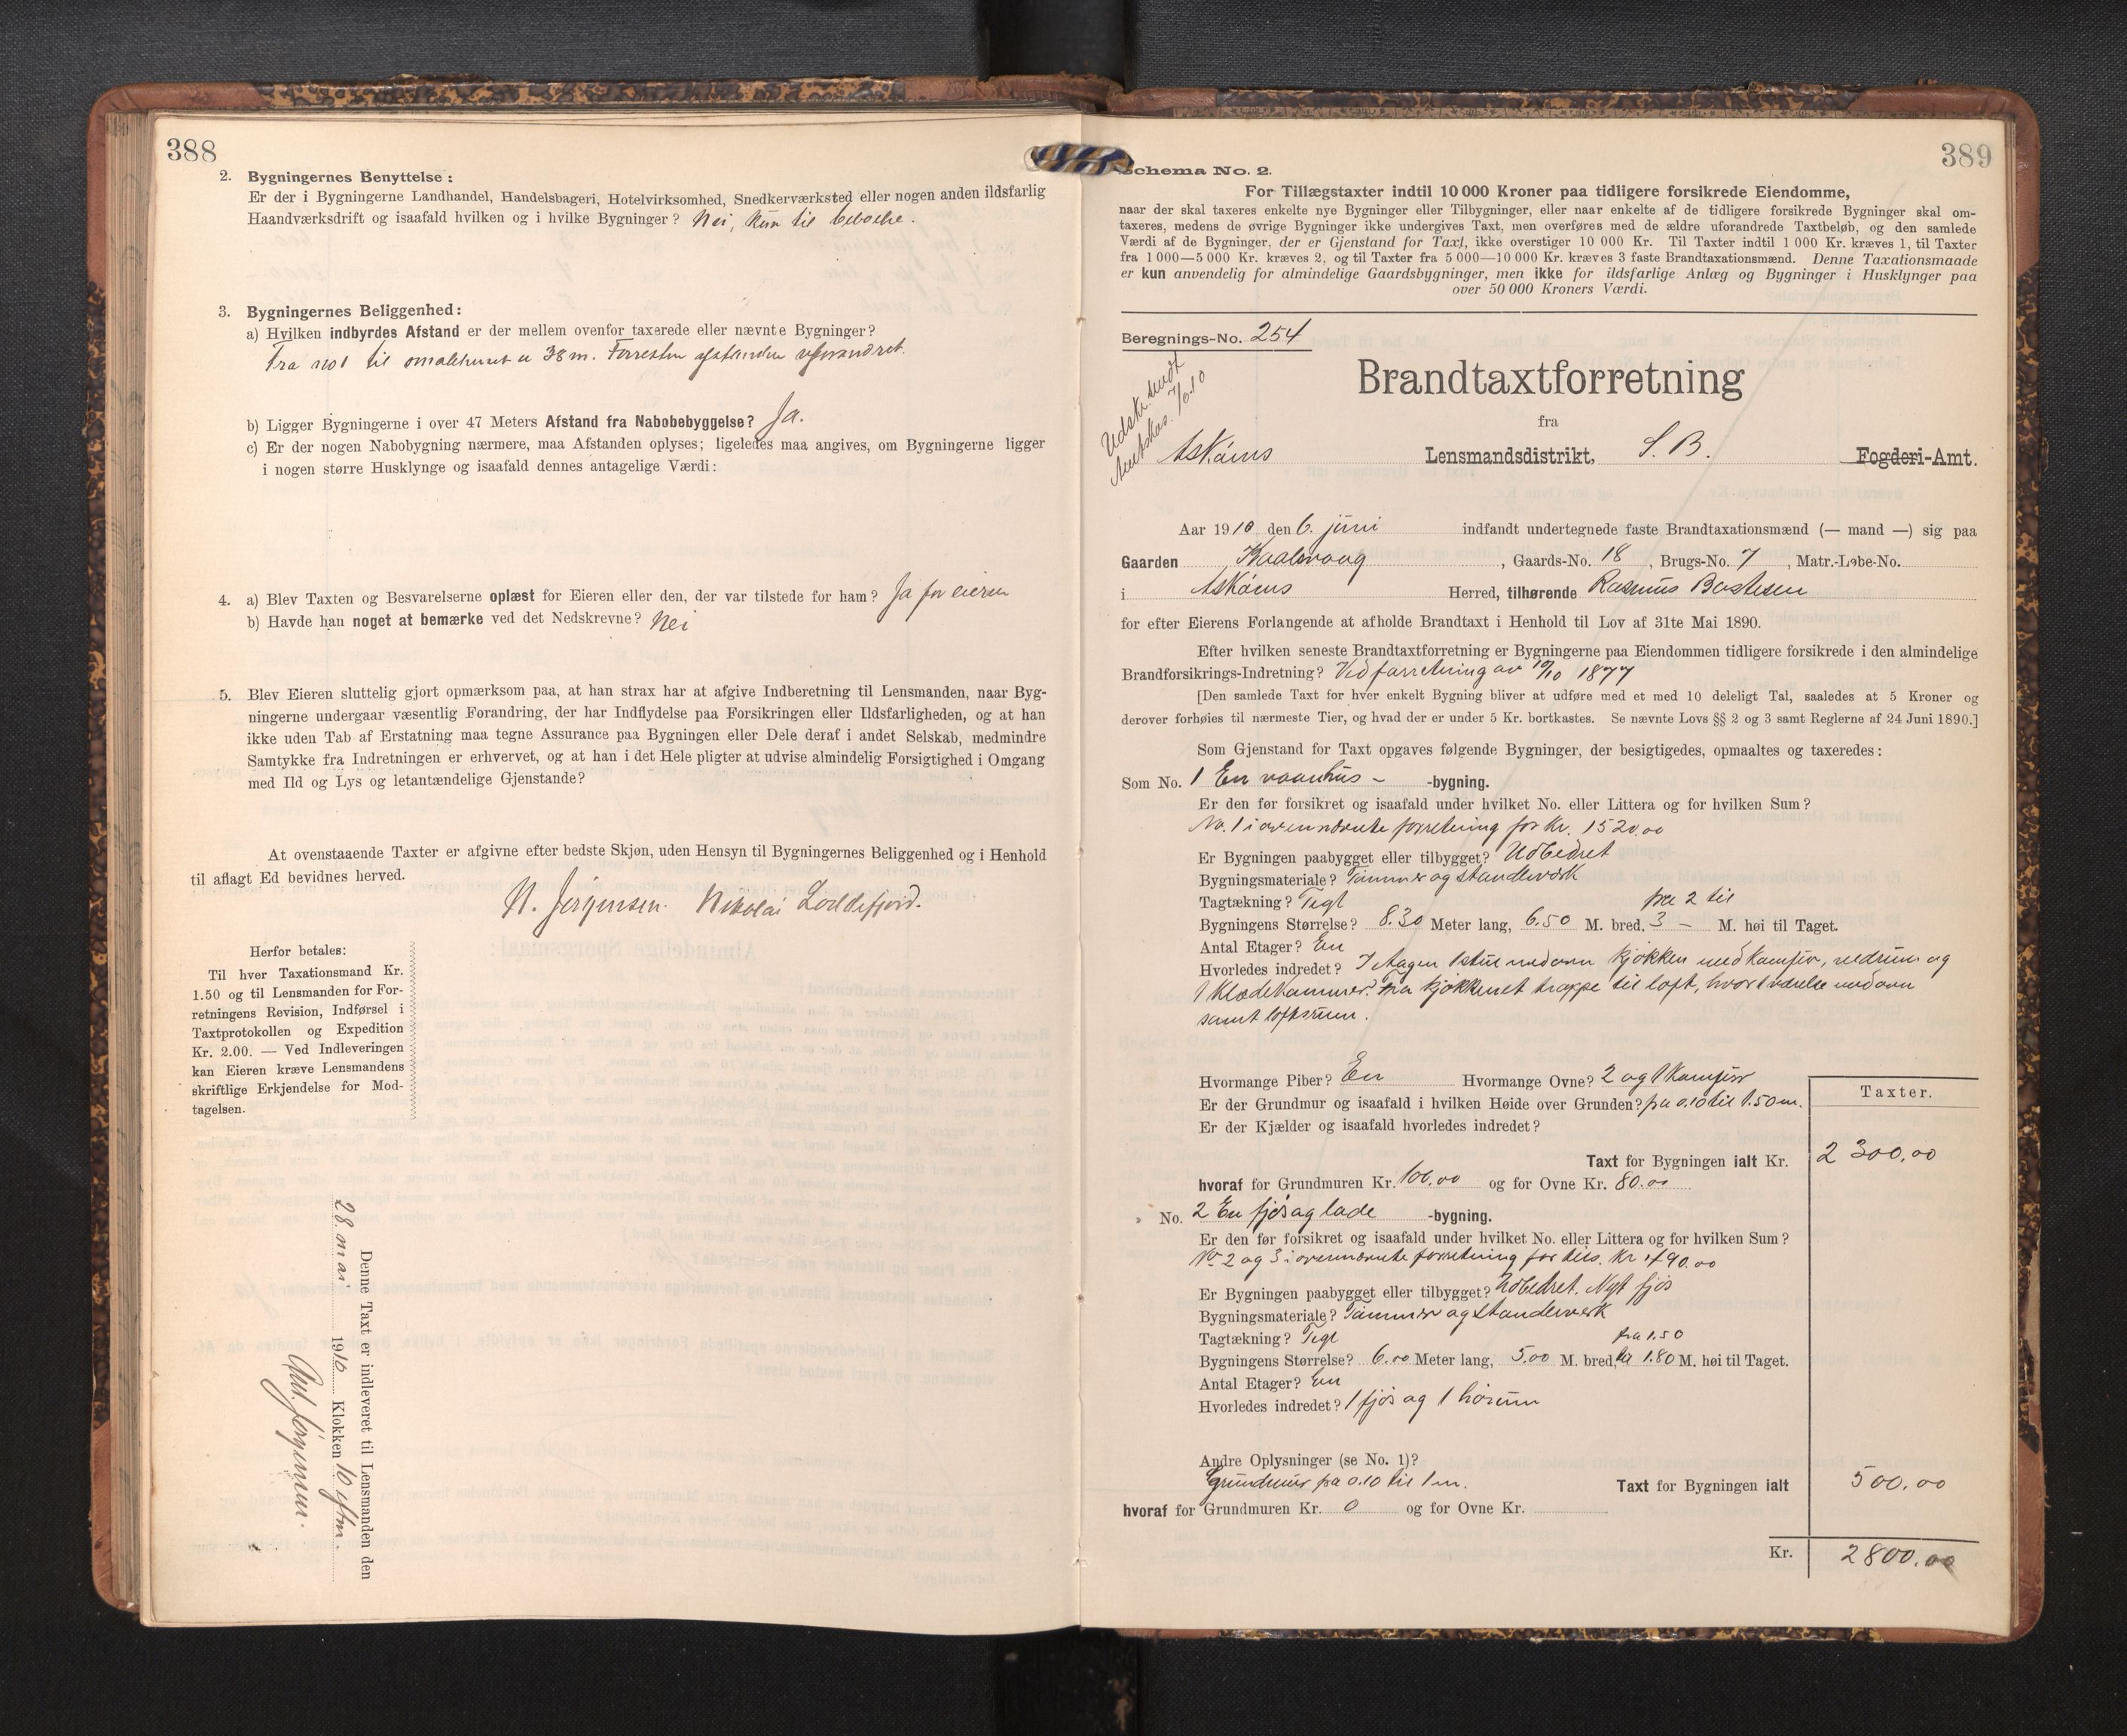 388
2. Bygningernes Benyttelse:
Er der i Bygningerne Landhandel, Handelsbageri, Hotelvirksomhed, Snedkerværksted eller nogen anden ildsfarlig
Haandværksdrift og isaafald hvilken og i hvilke Bygninger? Nei, kun til beboelse.
3. Bygningernes Beliggenhed:
a) Hvilken indbyrdes Afstand er der mellem ovenfor taxerede eller nævnte Bygninger?
Fra no 1 til smalehuset er 38 m. Forresten afstanden uforandret.
b) Ligger Bygningerne i over 47 Meters Afstand fra Nabobebyggelse? Ja.
c) Er der nogen Nabobygning nærmere, maa Afstanden oplyses; ligeledes maa angives, om Bygningerne ligger
i nogen større Husklynge og isaafald dennes antagelige Værdi:
4. a) Blev Taxten og Besvarelserne oplæst for Eieren eller den, der var tilstede for ham? Ja for eieren
b) Havde han noget at bemærke ved det Nedskrevne? Nei
5. Blev Eieren sluttelig gjort opmærksom paa, at han strax har at afgive Indberetning til Lensmanden, naar Byg-
ningerne undergaar væsentlig Forandring, der har Indflydelse paa Forsikringen eller Ildsfarligheden, og at han
ikke uden Tab af Erstatning maa tegne Assurance paa Bygningen eller Dele deraf i andet Selskab, medmindre
Samtykke fra Indretningen er erhvervet, og at han i det Hele pligter at udvise almindelig Forsigtighed i Omgang
med Ild og Lys og letantændelige Gjenstande?
At ovenstaaende Taxter er afgivne efter bedste Skjøn, uden Hensyn til Bygningernes Beliggenhed og i Henhold
til aflagt Ed bevidnes herved.
N. Jørgensen. Nikolai Loddefjord.
Herfor betales:
Til hver Taxationsmand Kr.
1.50 og til Lensmanden for For-
retningens Revision, Indførsel i
Taxtprotokollen og Expedition
Kr. 2.00. — Ved Indleveringen
kan Eieren kræve Lensmandens
skriftlige Erkjendelse for Mod-
tagelsen.
Denne Taxt er indleveret til Lensmanden den
28. mai 1910 Klokken 10 efm.
389
Schema No. 2.
For Tillægstaxter indtil 10 000 Kroner paa tidligere forsikrede Eiendomme,
naar der skal taxeres enkelte nye Bygninger eller Tilbygninger, eller naar enkelte af de tidligere forsikrede Bygninger skal om-
taxeres, medens de øvrige Bygninger ikke undergives Taxt, men overføres med de ældre uforandrede Taxtbeløb, og den samlede
Værdi af de Bygninger, der er Gjenstand for Taxt, ikke overstiger 10 000 Kr. Til Taxter indtil 1 000 Kr. kræves 1, til Taxter
fra 1 000—5 000 Kr. kræves 2, og til Taxter fra 5 000—10 000 Kr. kræves 3 faste Brandtaxationsmænd. Denne Taxationsmaade
er kun anvendelig for almindelige Gaardsbygninger, men ikke for ildsfarlige Anlæg og Bygninger i Husklynger paa
over 50 000 Kroners Værdi.
Beregnings-No. 254
Udskr. sendt
Amtskas. 7/6.10
Brandtaxtforretning
fra
Askøens Lensmandsdistrikt, S. B. Fogderi-Amt.
Aar 1910 den 6. juni indfandt undertegnede faste Brandtaxationsmænd (— mand —) sig paa
Gaarden , Gaards-No. 18 , Brugs-No. 7 , Matr.-Løbe-No.
i Askøens Herred, tilhørende Rasmus Bastesen
for efter Eierens Forlangende at afholde Brandtaxt i Henhold til Lov af 31te Mai 1890.
Efter hvilken seneste Brandtaxtforretning er Bygningerne paa Eiendommen tidligere forsikrede i den almindelige
Brandforsikrings-Indretning? Ved forretning av 19/10 1877
[Den samlede Taxt for hver enkelt Bygning bliver at udføre med et med 10 deleligt Tal, saaledes at 5 Kroner og
derover forhøies til nærmeste Tier, og hvad der er under 5 Kr. bortkastes. Se nævnte Lovs §§ 2 og 3 samt Reglerne af 24 Juni 1890.]
Som Gjenstand for Taxt opgaves følgende Bygninger, der besigtigedes, opmaaltes og taxeredes:
Som No. 1 En vaanhus- -bygning.
Er den før forsikret og isaafald under hvilket No. eller Littera og for hvilken Sum?
No. 1 i ovennævnte forretning for Kr. 1520.00
Er Bygningen paabygget eller tilbygget? Udbedret
Bygningsmateriale? Tømmer og standerværk
Tagtækning? Tegl fra 2 til
Bygningens Størrelse? 8.30 Meter lang, 6.50 M. bred, 3 – M. høi til Taget.
Antal Etager? En
Hvorledes indredet? I etagen 1 stue kjøkken med komfur, vedrum og
1 klædekammer. Fra kjøkkenet trappe til loft, hvor 1 værelse
samt loftsrum.
Hvormange Piber? En Hvormange Ovne? 2 og 1 komfur
Er der Grundmur og isaafald i hvilken Høide over Grunden? fra 0.10 til 1.50 m.
Er der Kjælder og isaafald hvorledes indredet?
Taxter.
Taxt for Bygningen ialt Kr. 2 300.00
hvoraf for Grundmuren Kr. 100.00 og for Ovne Kr. 80.00
No. 2 En fjøs og lade -bygning.
Er den før forsikret og isaafald under hvilket No. eller Littera og for hvilken Sum?
No. 2 og 3 i ovennævnte forretning for tils. Kr 490.00
Er Bygningen paabygget eller tilbygget? Udbedret. Nyt fjøs
Bygningsmateriale? Tømmer og standerverk
Tagtækning? Tegl fra 1.50
Bygningens Størrelse? 6.00 Meter lang, 5.00 M. bred, til 1.80 M. høi til Taget.
Antal Etager? En
Hvorledes indredet? 1 fjøs og 1 hørum
Andre Oplysninger (se No. 1)?
Grundmur fra 0.10 til 1 m. Taxt for Bygningen ialt 500.00
hvoraf for Grundmuren Kr. 0 og for Ovne Kr.
Kr. 2800.00